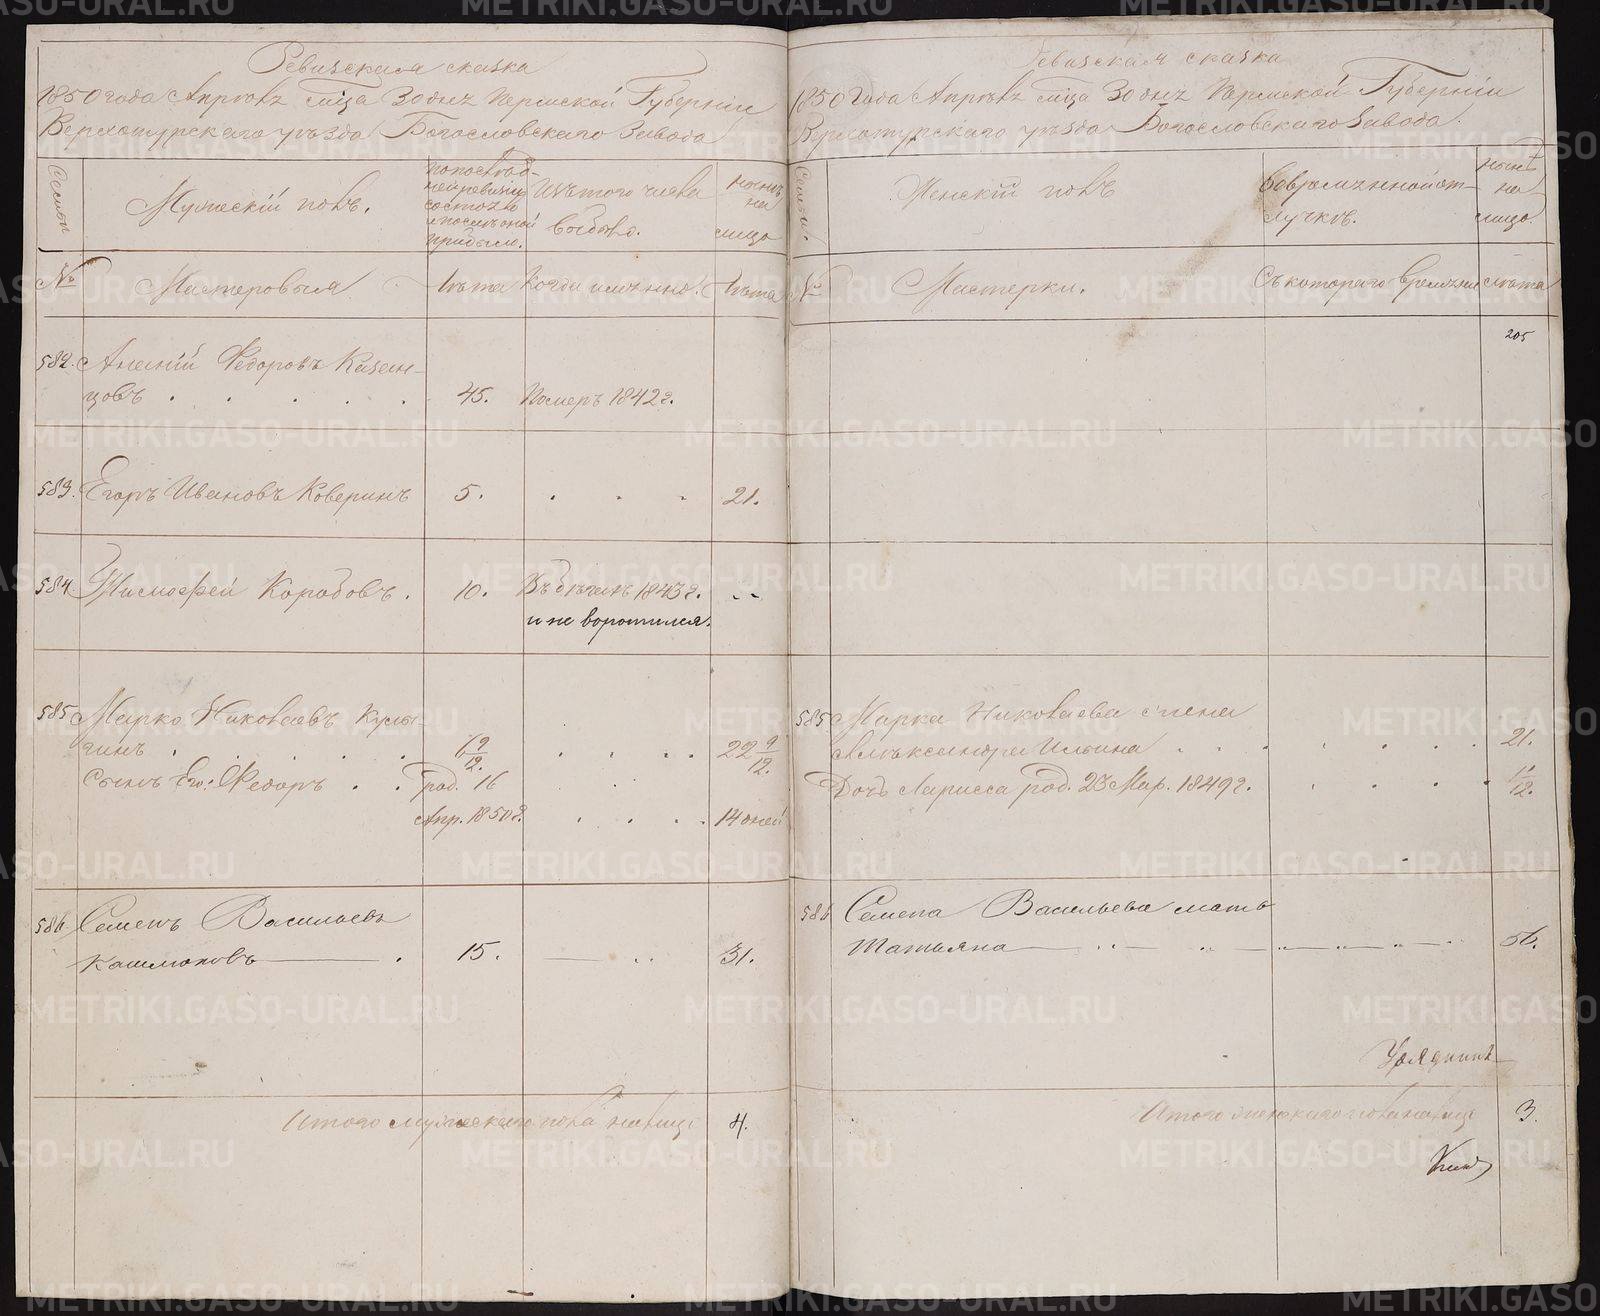 Ревизская сказка
1850 года Апрѣля мѣца 30 дня Пермской Губерніи
Верхотурскаго уѣзда Богословскаго Завода
Семьи
Мужескій полъ.
по послѣд-
ней ревизіи
состояло
и послѣ оной
прибыло.
Изъ того числа
выбыло.
Нынѣ
на
лицо
№
Мастеровыя
Лѣта
Когда именно.
Лѣта
582.
Федоровъ Казан-
цовъ . . . . .
45.
Померъ 1842 г.
583.
Егоръ Ивановъ Коверинъ
5.
21.
584.
Тимофей Коробовъ.
10.
Въ бѣгахъ 1843 г.
и не воротился.
585
Марко Николаевъ
6 9/12.
22 9/12.
Сынъ Его: Федоръ . .
род. 16
Апр. 1850 г.
14 дней
586
Семенъ Васильевъ
15.
31.
Итого мужескаго пола на лицо
4.
Ревизская сказка
1850 года Апрѣля мѣца 30 дня Пермской Губерніи
Верхотурскаго уѣзда Богословскаго Завода.
Семьи.
Женскій полъ
Во временной от-
лучкѣ.
Нынѣ
на
лицо.
№
Мастерки.
Съ котораго времени
Лѣта
205
585
Марка Николаева жена
Александра Ильина
21.
Дочь Ларисса род. 23 Мар. 1849 г.
586
Семена Васильева мать
Татьяна
56.
Итого женскаго пола на лицо
3.
METRIKI.GASO-URAL.RU